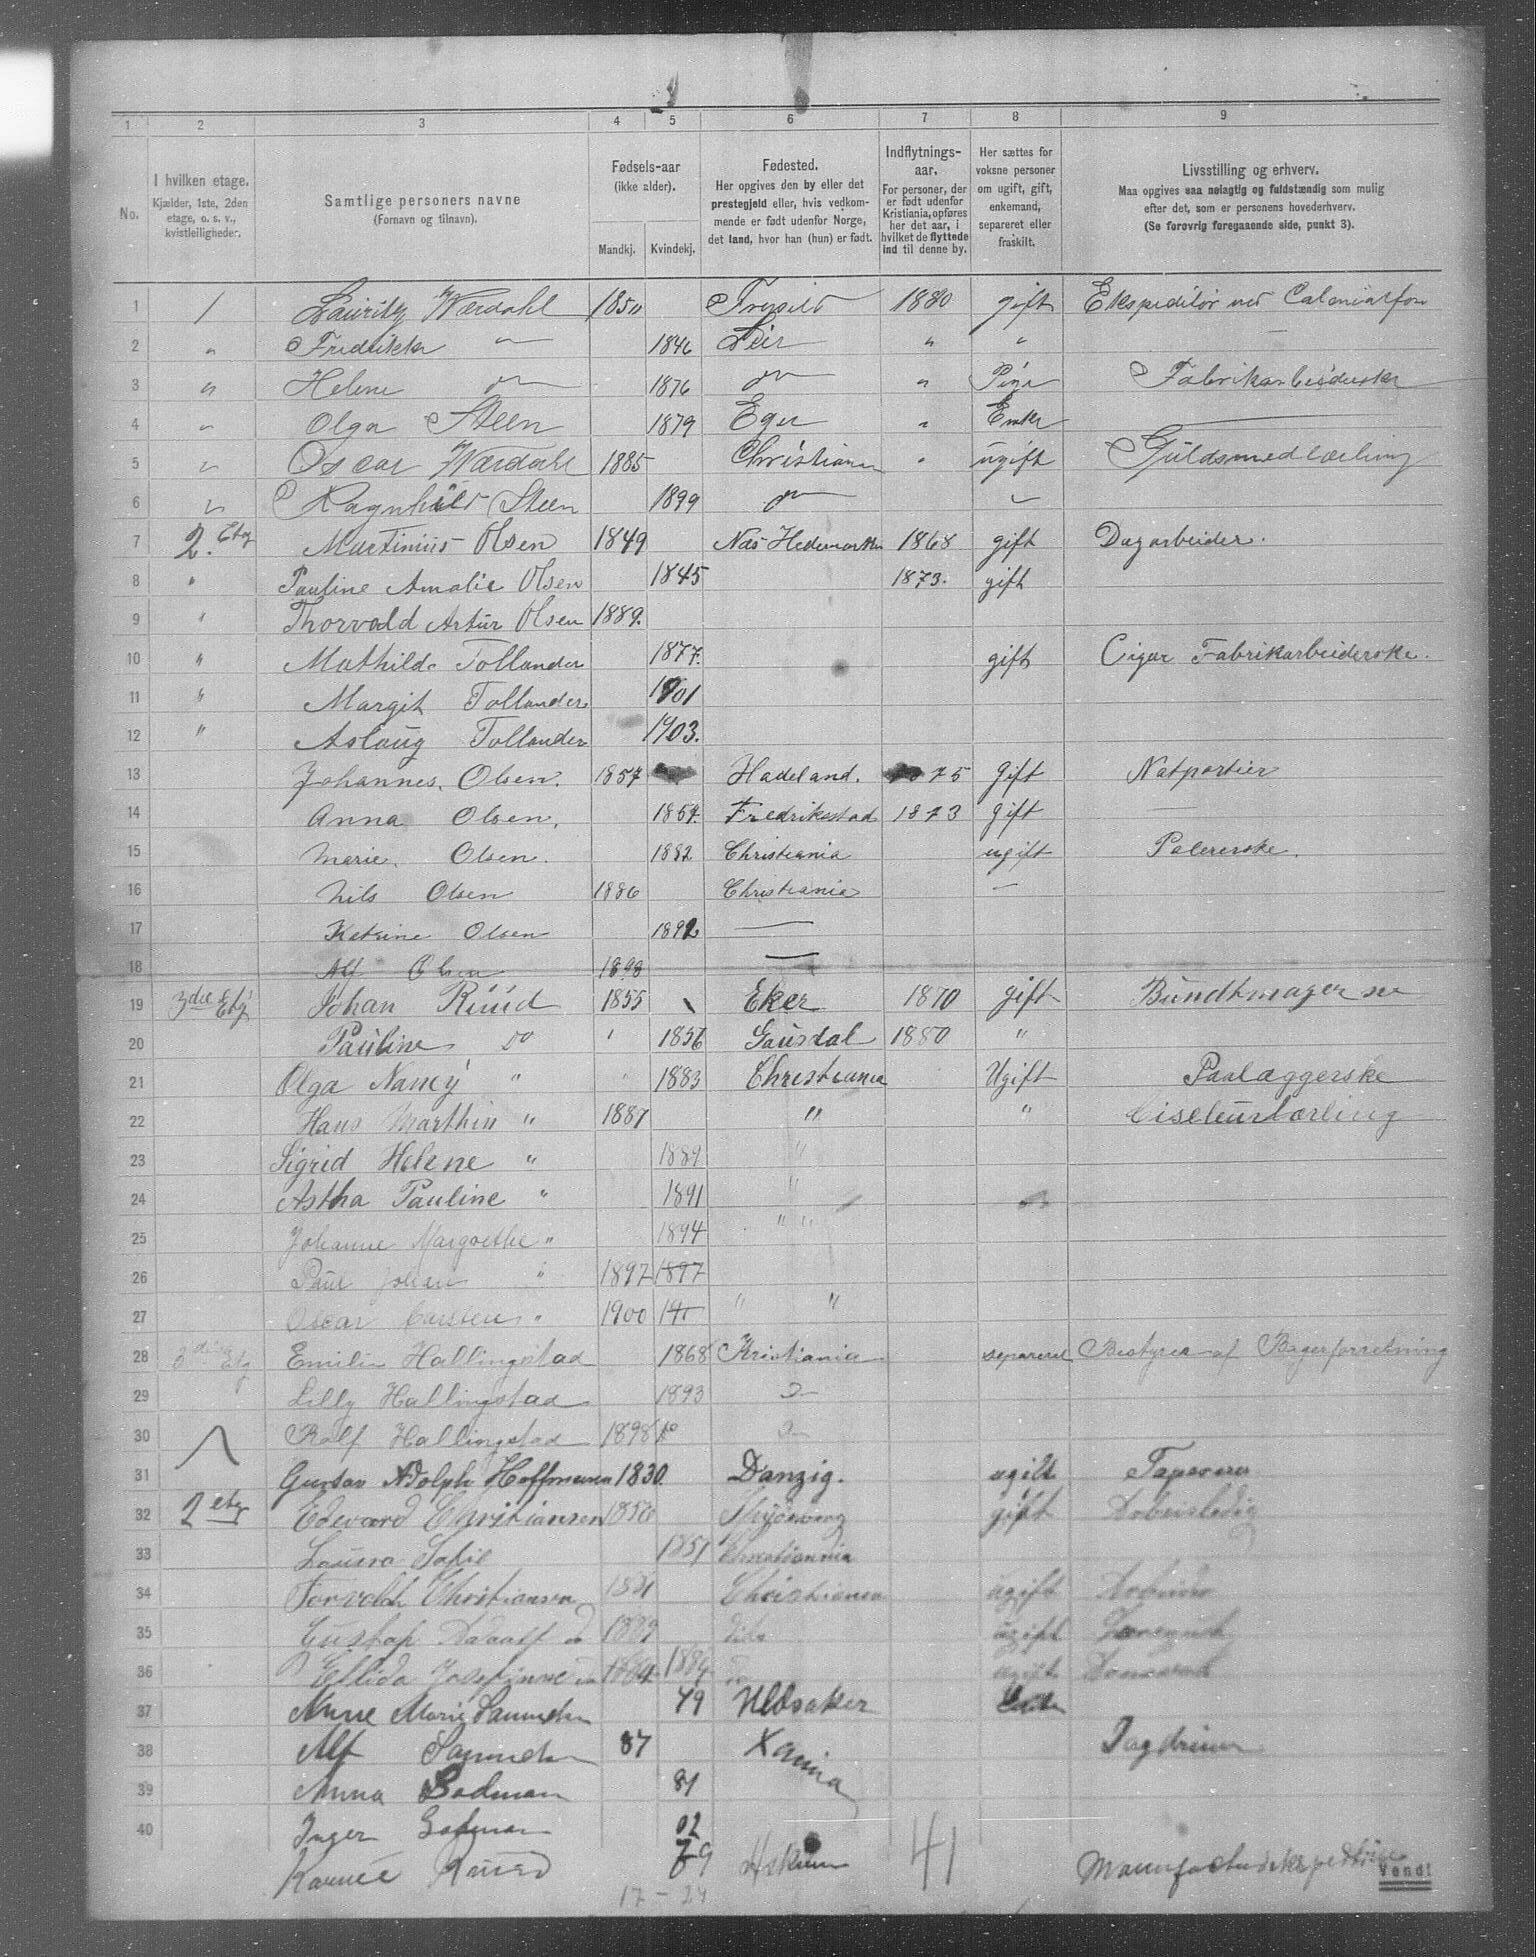 1 2 3 4 5 6 7 8 9
No.
I hvilken etage.
Kjælder, 1ste, 2den
etage, o. s. v.,
kvistleiligheder.
Samtlige personers navne
(Fornavn og tilnavn).
Fødsels-aar
(ikke alder).
Mandkj. Kvindekj.
Fødested.
Her opgives den by eller det
prestegjeld eller, hvis vedkom-
mende er født udenfor Norge,
det land, hvor han (hun) er født.
Indflytnings-
aar.
For personer, der
er født udenfor
Kristiania, opføres
her det aar, i
hvilket de flyttede
ind til denne by.
Her sættes for
voksne personer
om ugift, gift,
enkemand,
separeret eller
fraskilt.
Livsstilling og erhverv.
Maa opgives saa nøiagtig og fuldstændig som mulig
efter det, som er personens hovederhverv.
(Se forøvrig foregaaende side, punkt 3).
1 1 Lauritz Wærdahl 1850 1880 gift Ekspeditør ved
2 " Fredrikke — 1846 Lier " "
3 " Helene 1876 " Fabrikarbeiderske
4 " Olga Steen 1879 Eger " Enke —
5 " Oscar Wærdahl 1885 Christiania " ugift Guldsmedlærling
6 " Ragnhild Steen 1899
7 2. Etg Martinius Olsen 1849 Næs Hedemarken 1868 gift Dagarbeider.
8 " Pauline Amalie Olsen 1845 1873. gift
9 " Thorvald Artur Olsen 1889.
10 " Mathilde Tollander 1877. gift Cigar Fabrikarbeiderske.
11 " Margit Tollander 1901
12 " Aslaug Tollander 1903.
13 Johannes. Olsen. 1857 Hadeland. 1875 Gift Natportier
14 Anna Olsen. 1857. Fredrikstad 1873 gift —
15 Marie. Olsen. 1882 Christiania ugift Polererske.
16 Nils Olsen 1886 Christiania —
17 Katrine Olsen 1892 —
18 Alf Olsen 1898 —
19 3die Etg Johan Ruud 1855 Eker 1870 gift Bundtmager
20 Pauline do 1856 Gausdal 1880 "
21 Olga Nancy " 1883 Christiania Ugift Paalæggerske
22 Hans Marthin " 1887 " " Ciseleurlærling
23 Sigrid Helene " 1889 "
24 Astha Pauline " 1891 "
25 Johanne Margrethe " 1894 " "
26 Paul Johan " 1897 1897
27 Oscar Carsten " 1900 " "
28 3die Etg Emilie Hallingstad 1868 Kristiania separeret Bestyrer af Bagerforretning
29 Lilly Hallingstad 1893
30 Rolf Hallingstad 1898
31 Gustav Adolph Hoffmann 1830. Danzig. ugift
32 2 etg Edevard Christiansen gift Arbeisledig
33 1851 Christiannia
34 Torvald Christiansen Christiania ugift Arbeider
35 Gustaf 1889 ugift
36 Ellida Josefinne 1884 ugift
37 Anne Marie 49 Ullsaker
38 Alf 87 Xania
39 Anna Bodman 81
40 Inger 02
Karnee 79 Askim 41
17 - 24
Vend!